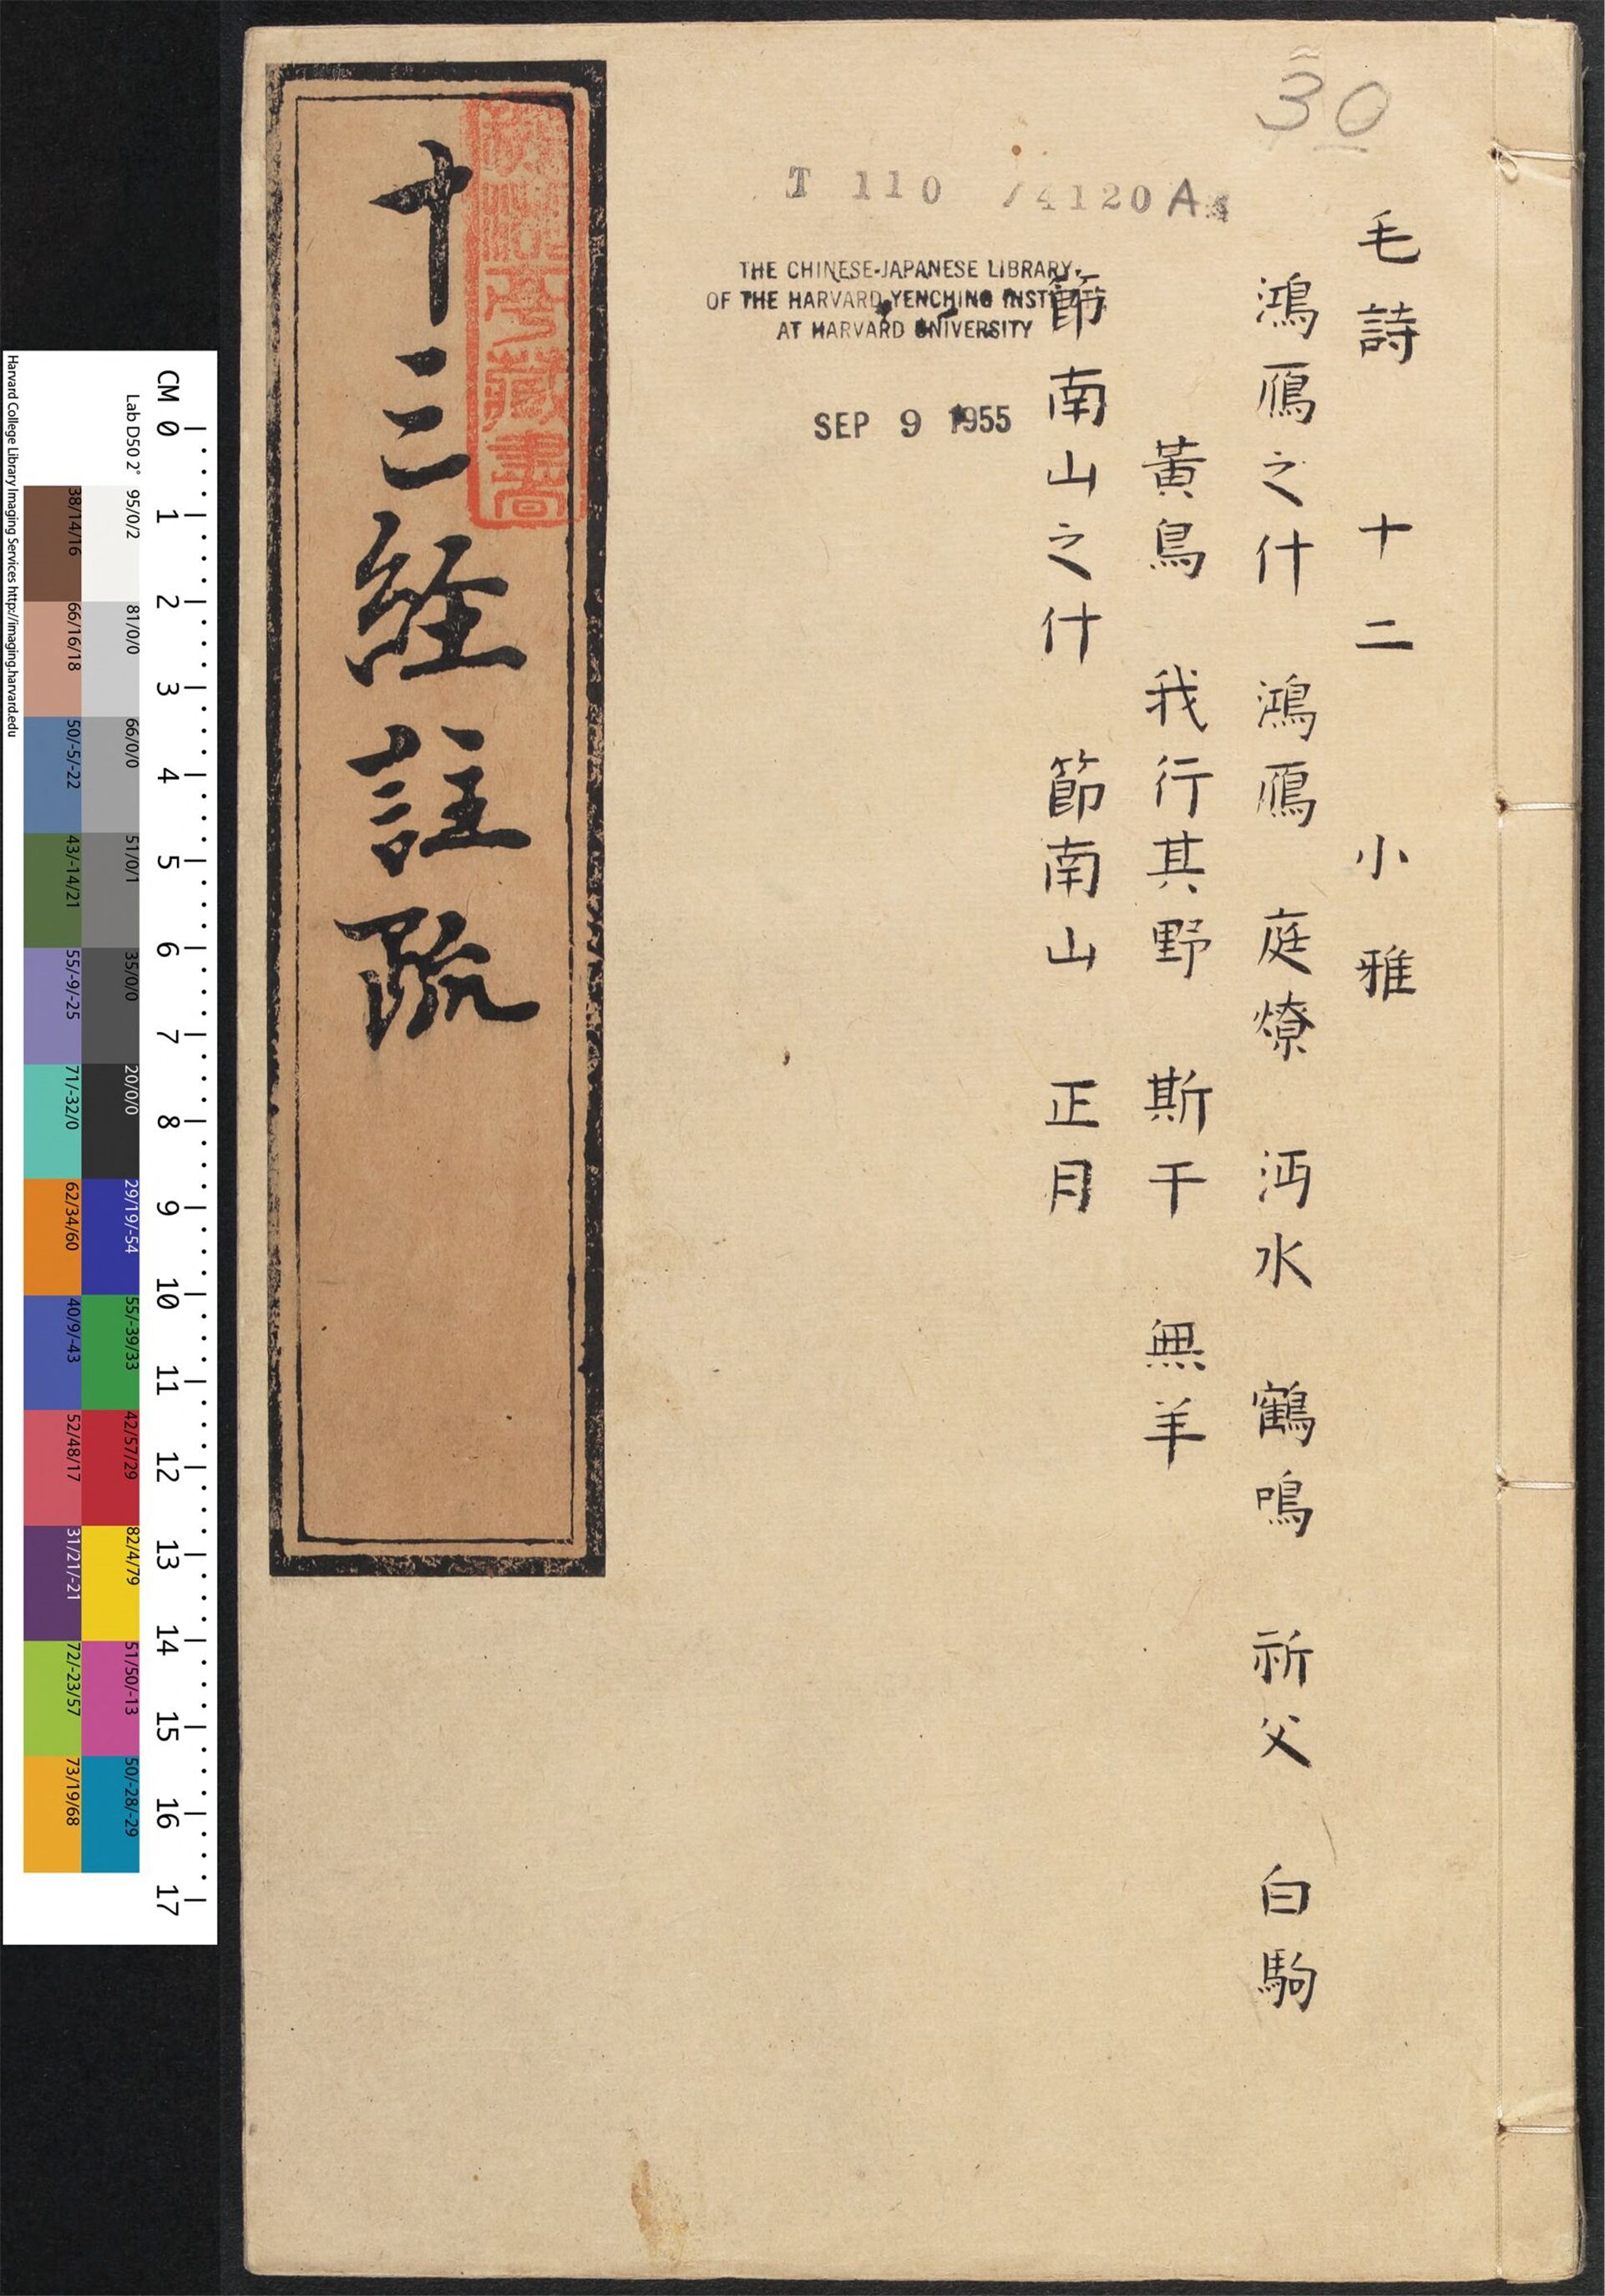 30
T 110 /4120 A
THE CHINESE-JAPANESE LIBRARY
OF THE HARVARD-YENCHING INSTITUTE
AT HARVARD UNIVERSITY
SEP 9 1955
毛詩 十二 小雅
鴻鴈之什 鴻鴈 庭燎 沔水 鶴鳴 祈父 白駒
黃鳥 我行其野 斯干 無羊
節南山之什 節南山 正月
十三経註疏
藏書
CM 0 1 2 3 4 5 6 7 8 9 10 11 12 13 14 15 16 17
Lab D50 2°
95/0/2 81/0/0 66/0/0 51/0/1 35/0/0 20/0/0 29/19/-54 55/-39/33 42/57/29 82/4/79 51/50/-13 50/-28/-29
38/14/16 66/16/18 50/-5/-22 43/-14/21 55/-9/-25 71/-32/0 62/34/60 40/9/-43 52/48/17 31/21/-21 72/-23/57 73/19/68
Harvard College Library Imaging Services http://imaging.harvard.edu